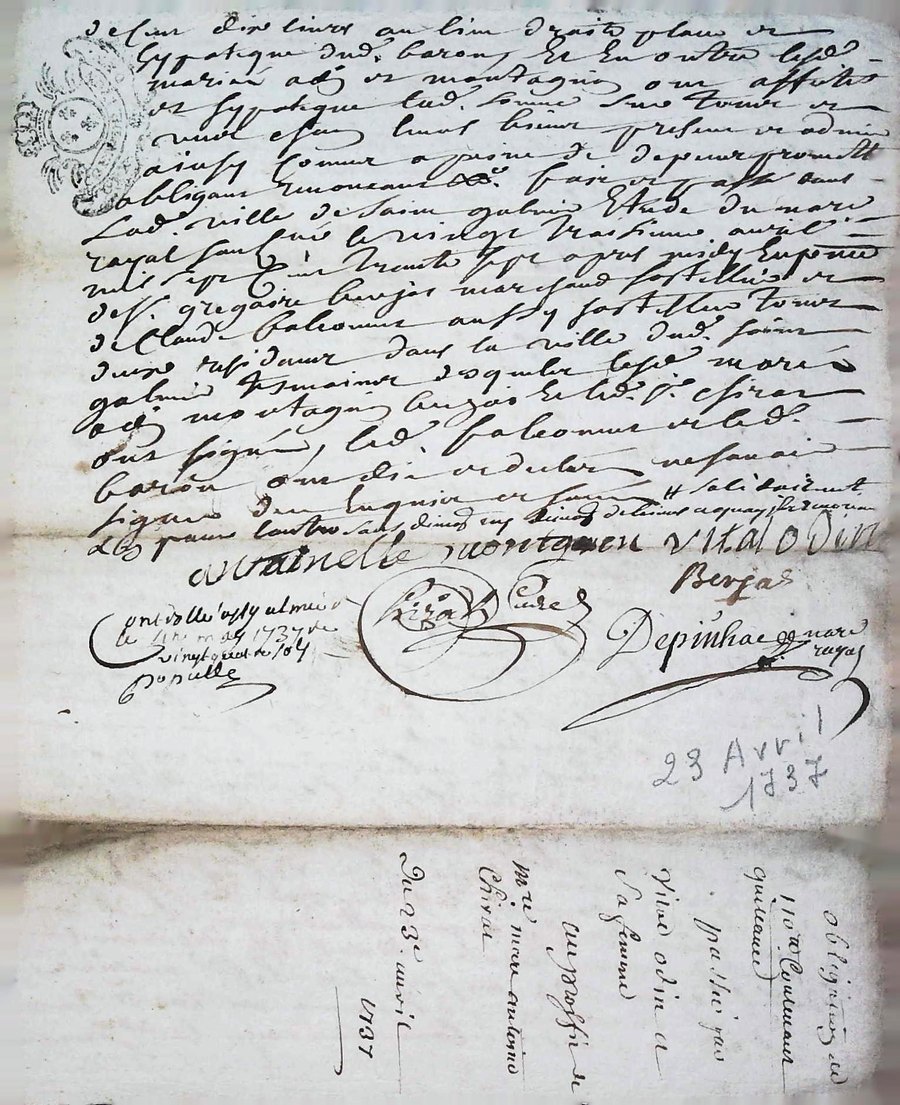 de cent dix livres au lieu droit place et
hypoteque dud. baron, Et En outre lesd.
mariés odin et montagnon ont affecté
et hypotequé lad. somme sur tous et
uns chacuns leurs biens presens et advenir
ainsy comme a peine de depens promett
obligeant Renonceant &c. fait et passé dans
Lad. ville de Saint galmier Etude du nore
royal soussigné le vingt troisieme avril
mil sept Cent trente sept apres midy En presence
de Sr. gregoire berjas marchand hostellier et
de Claude falconnet aussy hostellier tous
deux residants dans la ville dud. saint
galmier tesmoins desquels lesd. mariés
odin montagnon berjas Et led. Sr. Chirat
ont signé, led. falconnet et led.
baron ont dit et declaré ne savoir
signer de ce Enquis et sommés # solidairement
Les uns pour l'autre sans division
antoinette montagnon vital odin
Chirat Curé Berjas
Controllé a St galmier
le 4me may 1737
vingt quatre sols
populle
Depinhac nore
royal
23 Avril
1737
obligation de
110 ll Contenant
quittance
passée par
vital odin et
Sa femme
au proffit de
mre marc antoine
Chirat
Du 23e avril
1737